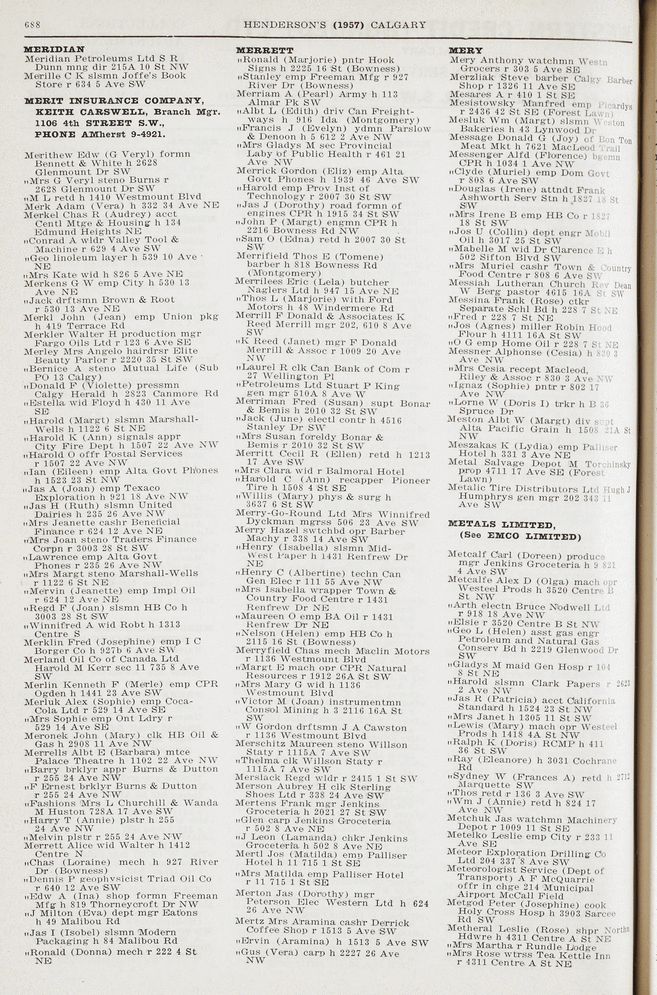 688
HENDERSON'S (1957) CALGARY
MERIDIAN
Meridian Petroleums Ltd S R
Dunn mng dir 215A 10 St NW
Merille C K slsmn Joffe's Book
Store r 634 5 Ave SW
MERIT INSURANCE COMPANY,
KEITH CARSWELL, Branch Mgr.
1106 4th STREET S.W.,
PHONE AMherst 9-4921.
Merithew Edw (G Veryl) formn
Bennett & White h 2628
Glenmount Dr SW
"Mrs G Veryl steno Burns r
2628 Glenmount Dr SW
"M L retd h 1410 Westmount Blvd
Merk Adam (Vera) h 332 34 Ave NE
Merkel Chas R (Audrey) acct
Centl Mtge & Housing h 134
Edmund Heights NE
"Conrad A widr Valley Tool &
Machine r 629 4 Ave SW
"Geo linoleum layer h 539 10 Ave
NE
"Mrs Kate wid h 826 5 Ave NE
Merkens G W emp City h 530 13
Ave NE
"Jack drftsmn Brown & Root
r 530 13 Ave NE
Merkl John (Jean) emp Union pkg
h 419 Terrace Rd
Merkler Walter H production mgr
Fargo Oils Ltd r 123 6 Ave SE
Merley Mrs Angelo hairdrsr Elite
Beauty Parlor r 2220 35 St SW
"Bernice A steno Mutual Life (Sub
PO 13 Calgy)
"Donald F (Violette) pressmn
Calgy Herald h 2823 Canmore Rd
"Estella wid Floyd h 430 11 Ave
SE
"Harold (Margt) slsmn Marshall-
Wells h 1122 6 St NE
"Harold K (Ann) signals appr
City Fire Dept h 1507 22 Ave NW
"Harold O offr Postal Services
r 1507 22 Ave NW
"Ian (Eileen) emp Alta Govt Phones
h 1523 23 St NW
"Jas A (Joan) emp Texaco
Exploration h 921 18 Ave NW
"Jas H (Ruth) slsmn United
Dairies h 235 26 Ave NW
"Mrs Jeanette cashr Beneficial
Finance r 624 12 Ave NE
"Mrs Joan steno Traders Finance
Corpn r 3003 28 St SW
"Lawrence emp Alta Govt
Phones r 235 26 Ave NW
"Mrs Margt steno Marshall-Wells
r 1122 6 St NE
"Mervin (Jeanette) emp Impl Oil
r 624 12 Ave NE
"Regd F (Joan) slsmn HB Co h
3003 28 St SW
"Winnifred A wid Robt h 1313
Centre S
Merklin Fred (Josephine) emp I C
Borger Co h 927b 6 Ave SW
Merland Oil Co of Canada Ltd
Harold M Kerr sec 11 735 8 Ave
SW
Merlin Kenneth F (Merle) emp CPR
Ogden h 1441 23 Ave SW
Merluk Alex (Sophie) emp Coca-
Cola Ltd r 529 14 Ave SE
"Mrs Sophie emp Ont Ldry r
529 14 Ave SE
Meronek John (Mary) clk HB Oil &
Gas h 2908 11 Ave NW
Merrells Albt E (Barbara) mtce
Palace Theatre h 1102 22 Ave NW
"Barry brklyr appr Burns & Dutton
r 255 24 Ave NW
"F Ernest brklyr Burns & Dutton
r 255 24 Ave NW
"Fashions Mrs L Churchill & Wanda
M Huston 728A 17 Ave SW
"Harry T (Annie) plstr h 255
24 Ave NW
"Melvin plstr r 255 24 Ave NW
Merrett Alice wid Walter h 1412
Centre N
"Chas (Loraine) mech h 927 River
Dr (Bowness)
"Dennis P geophysicist Triad Oil Co
r 640 12 Ave SW
"Edw A (Ina) shop formn Freeman
Mfg h 819 Thorneycroft Dr NW
"J Milton (Eva) dept mgr Eatons
h 49 Malibou Rd
"Jas I (Isobel) slsmn Modern
Packaging h 84 Malibou Rd
"Ronald (Donna) mech r 222 4 St
NE
MERRETT
"Ronald (Marjorie) pntr Hook
Signs h 2225 16 St (Bowness)
"Stanley emp Freeman Mfg r 927
River Dr (Bowness)
Merriam A (Pearl) Army h 113
Almar Pk SW
"Albt L (Edith) driv Can Freight-
ways h 916 Ida (Montgomery)
"Francis J (Evelyn) ydmn Parslow
& Denoon h 5 612 2 Ave NW
"Mrs Gladys M sec Provincial
Laby of Public Health r 461 21
Ave NW
Merrick Gordon (Eliz) emp Alta
Govt Phones h 1939 46 Ave SW
"Harold emp Prov Inst of
Technology r 2007 30 St SW
"Jas J (Dorothy) road formn of
engines CPR h 1915 34 St SW
"John P (Margt) engmn CPR h
2216 Bowness Rd NW
"Sam O (Edna) retd h 2007 30 St
SW
Merrifield Thos E (Tomene)
barber h 818 Bowness Rd
(Montgomery)
Merrilees Eric (Lela) butcher
Naglers Ltd h 947 15 Ave NW
"Thos L (Marjorie) with Ford
Motors h 48 Windermere Rd
Merrill F Donald & Associates K
Reed Merrill mgr 202, 610 8 Ave
SW
"K Reed (Janet) mgr F Donald
Merrill & Assoc r 1009 20 Ave
NW
"Laurel R clk Can Bank of Com r
27 Wellington Pl
"Petroleums Ltd Stuart P King
gen mgr 510A 8 Ave W
Merriman Fred (Susan) supt Bonar
& Bemis h 2010 32 St SW
"Jack (June) electl contr h 4516
Stanley Dr SW
"Mrs Susan foreldy Bonar &
Bemis r 2010 32 St SW
Merritt Cecil R (Ellen) retd h 1213
17 Ave SW
"Mrs Clara wid r Balmoral Hotel
"Harold C (Ann) recapper Pioneer
Tire h 1508 4 St SE
"Willis (Mary) phys & surg h
3637 6 St SW
Merry-Go-Round Ltd Mrs Winnifred
Dyckman mgrss 506 23 Ave SW
Merry Hazel swtchbd opr Barber
Machy r 338 14 Ave SW
"Henry (Isabella) slsmn Mid-
West Paper h 1431 Renfrew Dr
NE
"Henry C (Albertine) techn Can
Gen Elec r 111 55 Ave NW
"Mrs Isabella wrapper Town &
Country Food Centre r 1431
Renfrew Dr NE
"Maureen O emp BA Oil r 1431
Renfrew Dr NE
"Nelson (Helen) emp HB Co h
2115 16 St (Bowness)
Merryfield Chas mech Maclin Motors
r 1136 Westmount Blvd
"Margt E mach opr CPR Natural
Resources r 1912 26A St SW
"Mrs Mary G wid h 1136
Westmount Blvd
"Victor M (Joan) instrumentmn
Consol Mining h 3 2116 16A St
SW
"W Gordon drftsmn J A Cawston
r 1136 Westmount Blvd
Merschitz Maureen steno Willson
Staty r 1115A 7 Ave SW
"Thelma clk Willson Staty r
1115A 7 Ave SW
Merslack Regd wldr r 2415 1 St SW
Merson Aubrey H clk Sterling
Shoes Ltd r 338 24 Ave SW
Mertens Frank mgr Jenkins
Groceteria h 2021 27 St SW
"Glen carp Jenkins Groceteria
r 502 8 Ave NE
"J Leon (Lamanda) chkr Jenkins
Groceteria h 502 8 Ave NE
Mertl Jos (Matilda) emp Palliser
Hotel h 11 715 1 St SE
"Mrs Matilda emp Palliser Hotel
r 11 715 1 St SE
Merton Jas (Dorothy) mgr
Peterson Elec Western Ltd h 624
26 Ave NW
Mertz Mrs Aramina cashr Derrick
Coffee Shop r 1513 5 Ave SW
"Ervin (Aramina) h 1513 5 Ave SW
"Gus (Vera) carp h 2227 26 Ave
NW
MERY
Mery Anthony watchmn Westn
Grocers r 303 5 Ave SE
Merzliak Steve barber Calgy Barber
Shop r 1326 11 Ave SE
Mesares A r 410 1 St SE
Mesistowsky Manfred emp Picardys
r 2436 42 St SE (Forest Lawn)
Mesluk Wm (Margt) slsmn Weston
Bakeries h 43 Lynwood Dr
Message Donald G (Joy) of Bon Ton
Meat Mkt h 7621 MacLeod Trail
Messenger Alfd (Florence) bgemn
CPR h 1034 1 Ave NW
"Clyde (Muriel) emp Dom Govt
r 808 6 Ave SW
"Douglas (Irene) attndt Frank
Ashworth Serv Stn h 1827 18 St
SW
"Mrs Irene B emp HB Co r 1827
18 St SW
"Jos U (Collin) dept engr Mobil
Oil h 3017 25 St SW
"Mabelle M wid Dr Clarence E h
502 Sifton Blvd SW
"Mrs Muriel cashr Town & Country
Food Centre r 808 6 Ave SW
Messiah Lutheran Church Rev Dean
W Berg pastor 4615 16A St SW
Messina Frank (Rose) ctkr
Separate Schl Bd h 228 7 St NE
"Fred r 228 7 St NE
"Jos (Agnes) miller Robin Hood
Flour h 4111 16A St SW
"O G emp Home Oil r 228 7 St NE
Messner Alphonse (Cesia) h 830 3
Ave NW
"Mrs Cesia recept Macleod,
Riley & Assoc r 830 3 Ave NW
"Ignaz (Sophie) pntr r 802 17
Ave NW
"Lorne W (Doris I) trkr h B 26
Spruce Dr
Meston Albt W (Margt) div supt
Alta Pacific Grain h 1508 21A St
NW
Meszakas K (Lydia) emp Palliser
Hotel h 331 3 Ave NE
Metal Salvage Depot M Torchinsky
prop 4711 17 Ave SE (Forest
Lawn)
Metalic Tire Distributors Ltd Hugh J
Humphrys gen mgr 202 343 11
Ave SW
METALS LIMITED,
(See EMCO LIMITED)
Metcalf Carl (Doreen) produce
mgr Jenkins Groceteria h 9 821
4 Ave SW
Metcalfe Alex D (Olga) mach opr
Westeel Prods h 3520 Centre B
St NW
"Arth electn Bruce Nodwell Ltd
r 918 18 Ave NW
"Elsie r 3520 Centre B St NW
"Geo L (Helen) asst gas engr
Petroleum and Natural Gas
Conserv Bd h 2219 Glenwood Dr
SW
"Gladys M maid Gen Hosp r 104
8 St NE
"Harold slsmn Clark Papers r 2621
2 Ave NW
"Jas R (Patricia) acct California
Standard h 1524 23 St NW
"Mrs Janet h 1305 11 St SW
"Lewis (Mary) mach opr Westeel
Prods h 1418 4A St NW
"Ralph K (Doris) RCMP h 411
36 St SW
"Ray (Eleanore) h 3031 Cochrane
Rd
"Sydney W (Frances A) retd h 2712
Marquette SW
"Thos retd r 136 3 Ave SW
"Wm J (Annie) retd h 824 17
Ave NW
Metchuk Jas watchmn Machinery
Depot r 1009 11 St SE
Metelko Leslie emp City r 233 11
Ave SE
Meteor Exploration Drilling Co
Ltd 204 337 8 Ave SW
Meteorologist Service (Dept of
Transport) A F McQuarrie
offr in chge 214 Municipal
Airport McCall Field
Metgod Peter (Josephine) cook
Holy Cross Hosp h 3903 Sarcee
Rd SW
Metheral Leslie (Rose) shpr North
Hdwre h 4311 Centre A St NE
"Mrs Martha r Rundle Lodge
"Mrs Rose wtrss Tea Kettle Inn
r 4311 Centre A St NE